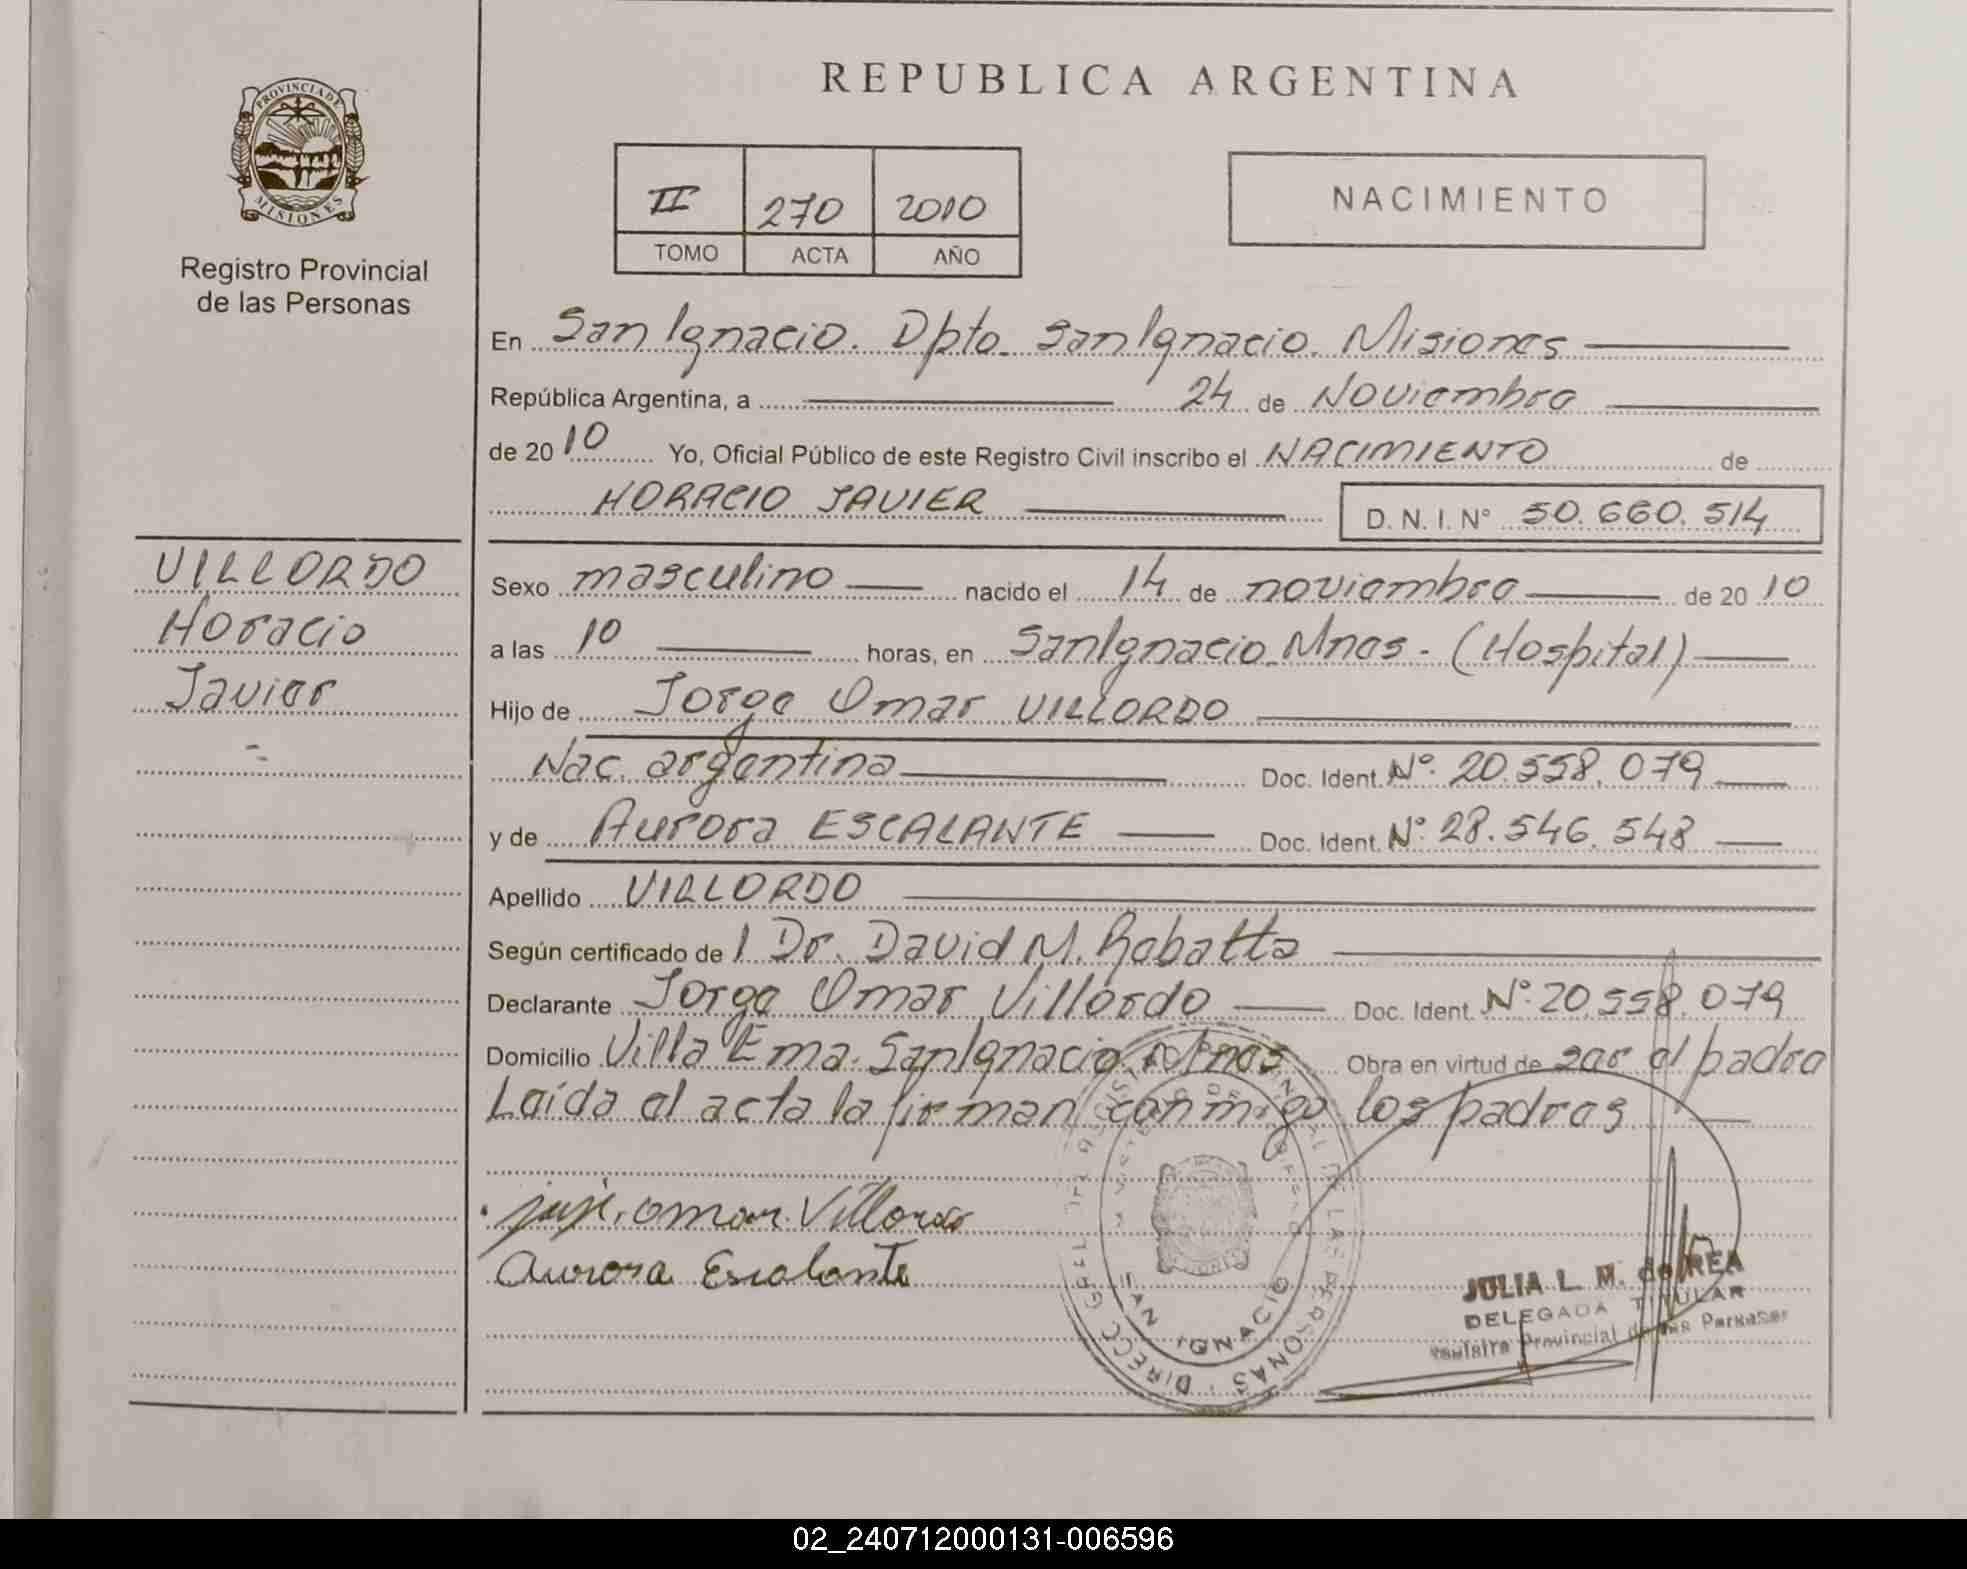 REPUBLICA ARGENTINA
PROVINCIA DE
MISIONES
Registro Provincial
de las Personas
II 270 2010
TOMO ACTA AÑO
NACIMIENTO
En San Ignacio. Dpto. San Ignacio. Misiones
República Argentina, a 24 de Noviembre
de 20 10 Yo, Oficial Público de este Registro Civil inscribo el NACIMIENTO de
HORACIO JAVIER D. N. I. N° 50.660.514
VILLORDO
Horacio
Javier
Sexo masculino nacido el 14 de noviembre de 20 10
a las 10 horas, en San Ignacio. Mnes - (Hospital)
Hijo de Jorge Omar VILLORDO
Nac. argentina Doc. Ident. N°. 20.558.079
y de Aurora ESCALANTE Doc. Ident. N°. 28.546.548
Apellido VILLORDO
Según certificado de l Dr. David M. Rebatta
Declarante Jorge Omar Villordo Doc. Ident. N°. 20.558.079
Domicilio Villa Ema. San Ignacio. Mnes Obra en virtud de ser el padre
Leída el acta la firman conmigo los padres
Omar Villordo
Aurora Escalante
SAN IGNACIO
JULIA L. M. de REA
DELEGADA TITULAR
Registro Provincial de las Personas
02_240712000131-006596